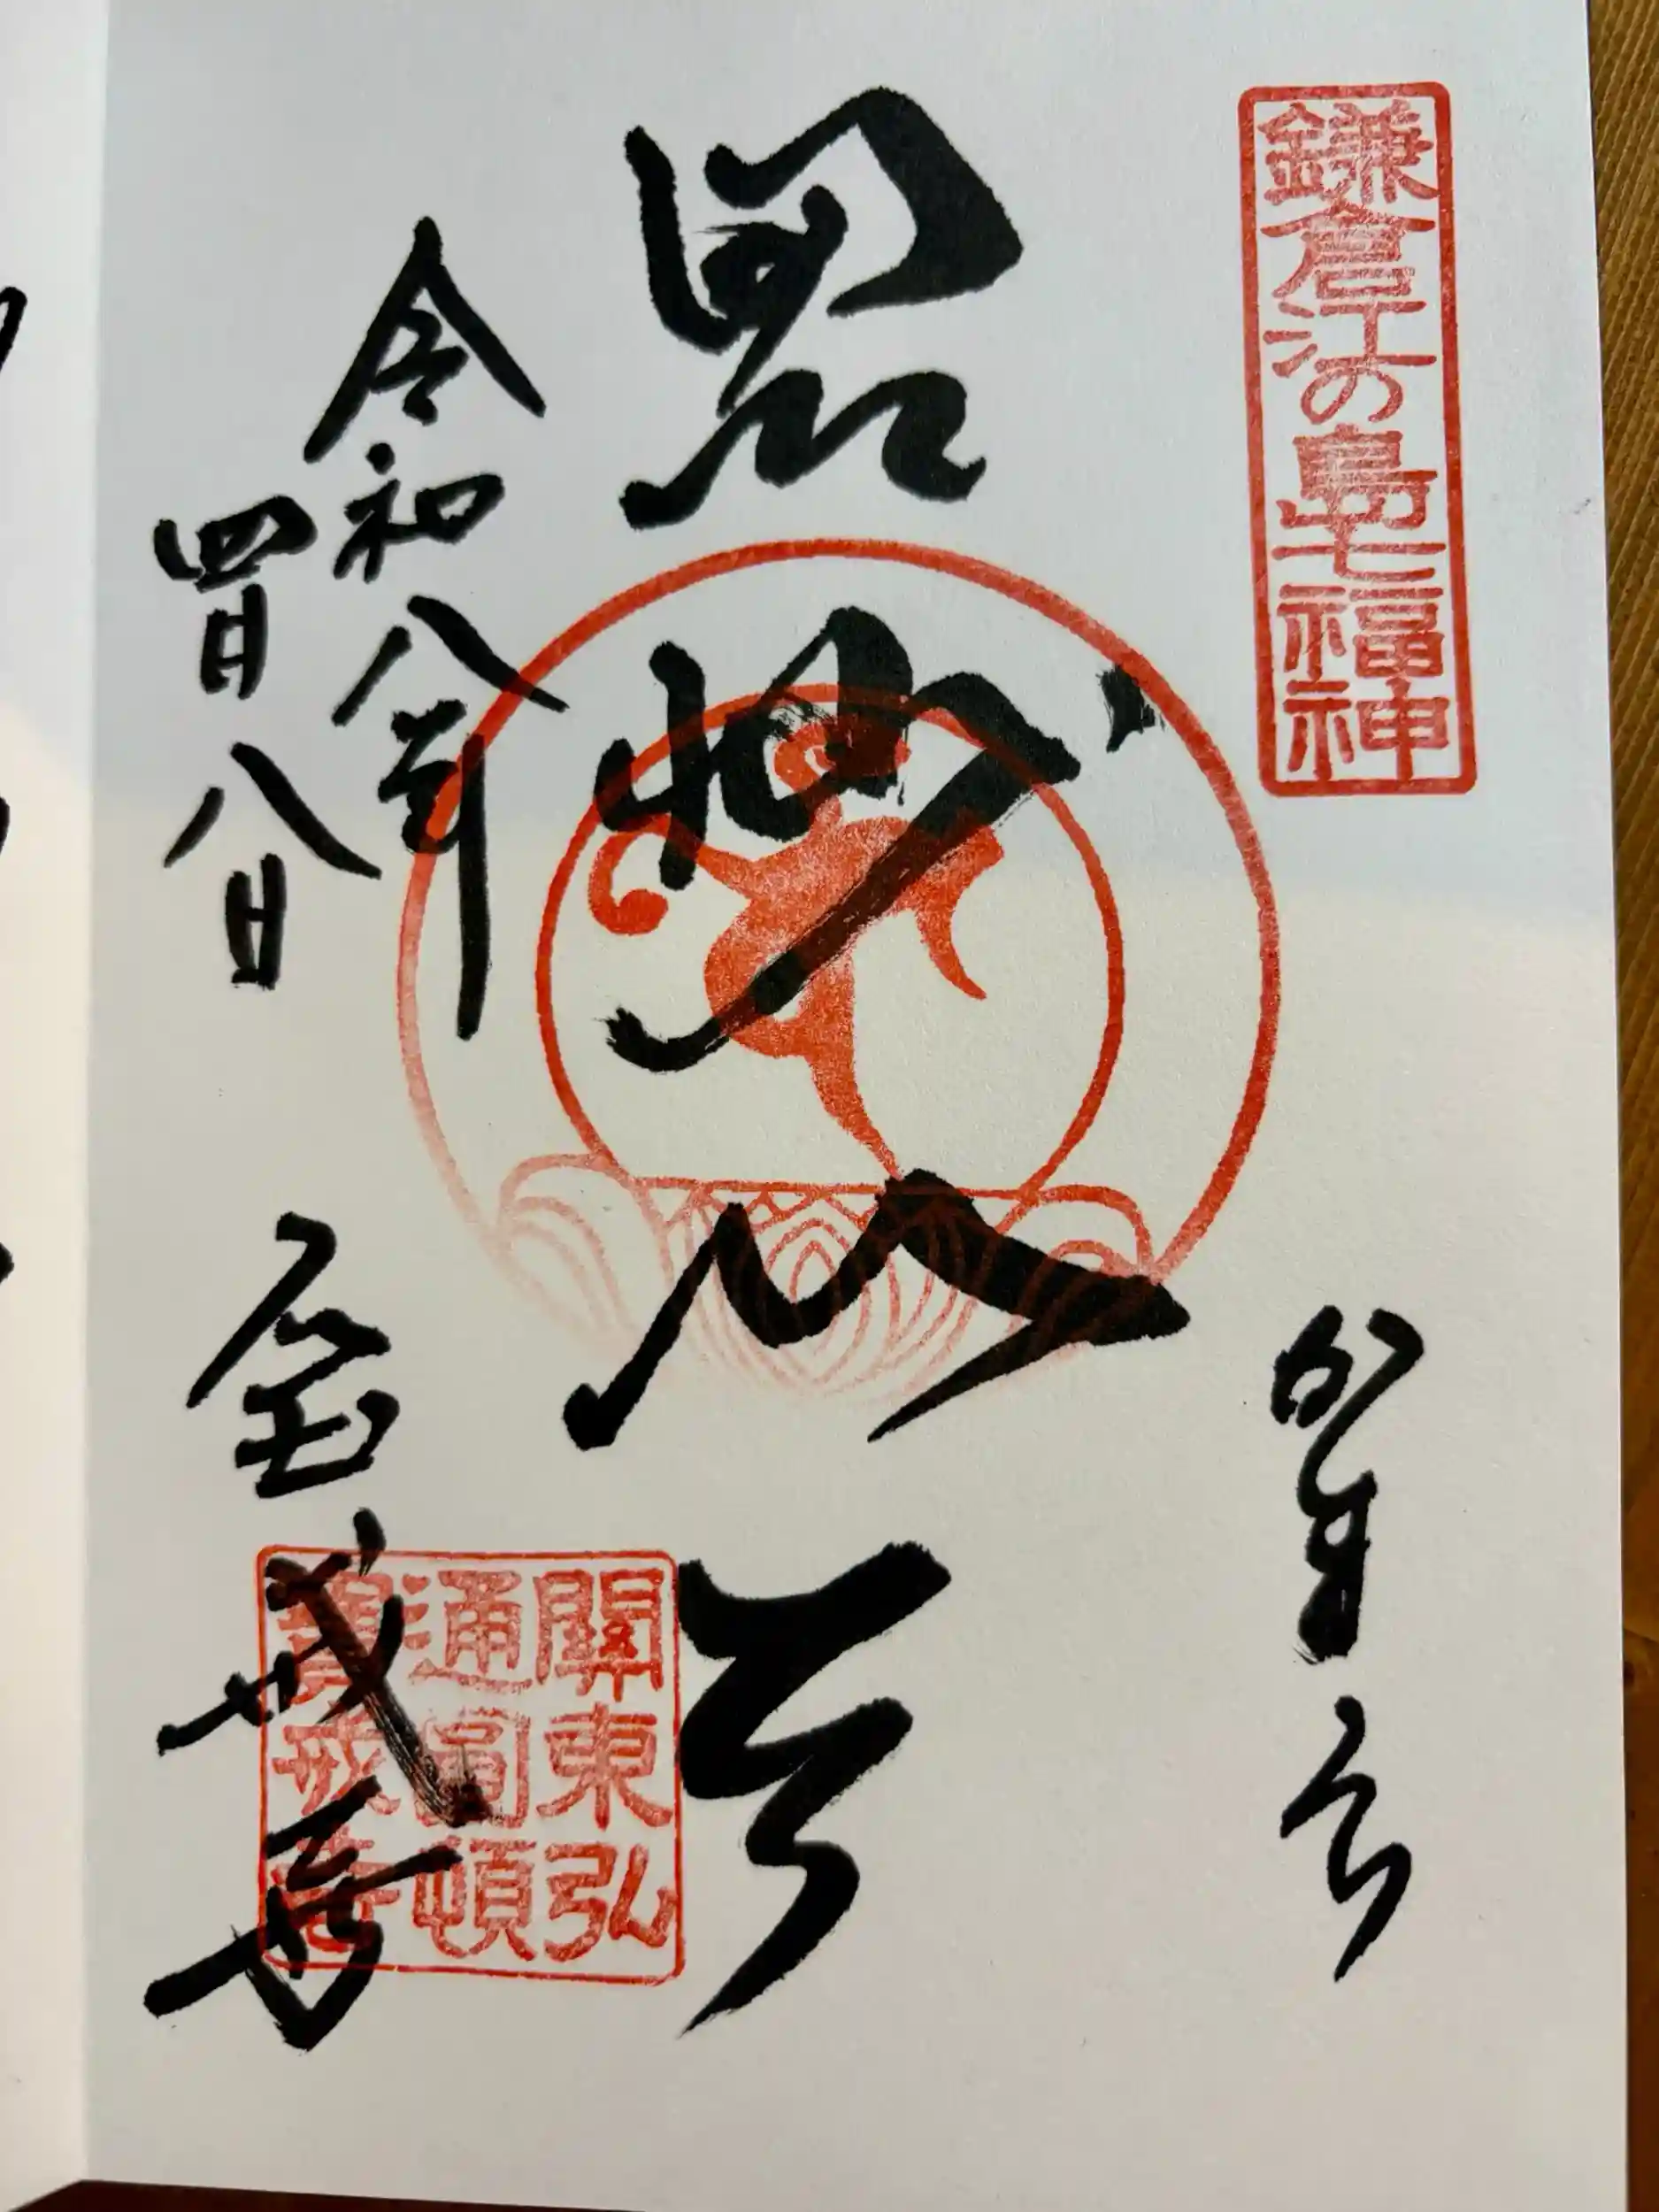 鎌倉江の島七福神
奉拝
毘沙門天
令和八年
四月八日
宝戒寺
關東弘
通圓頓
寶戒寺